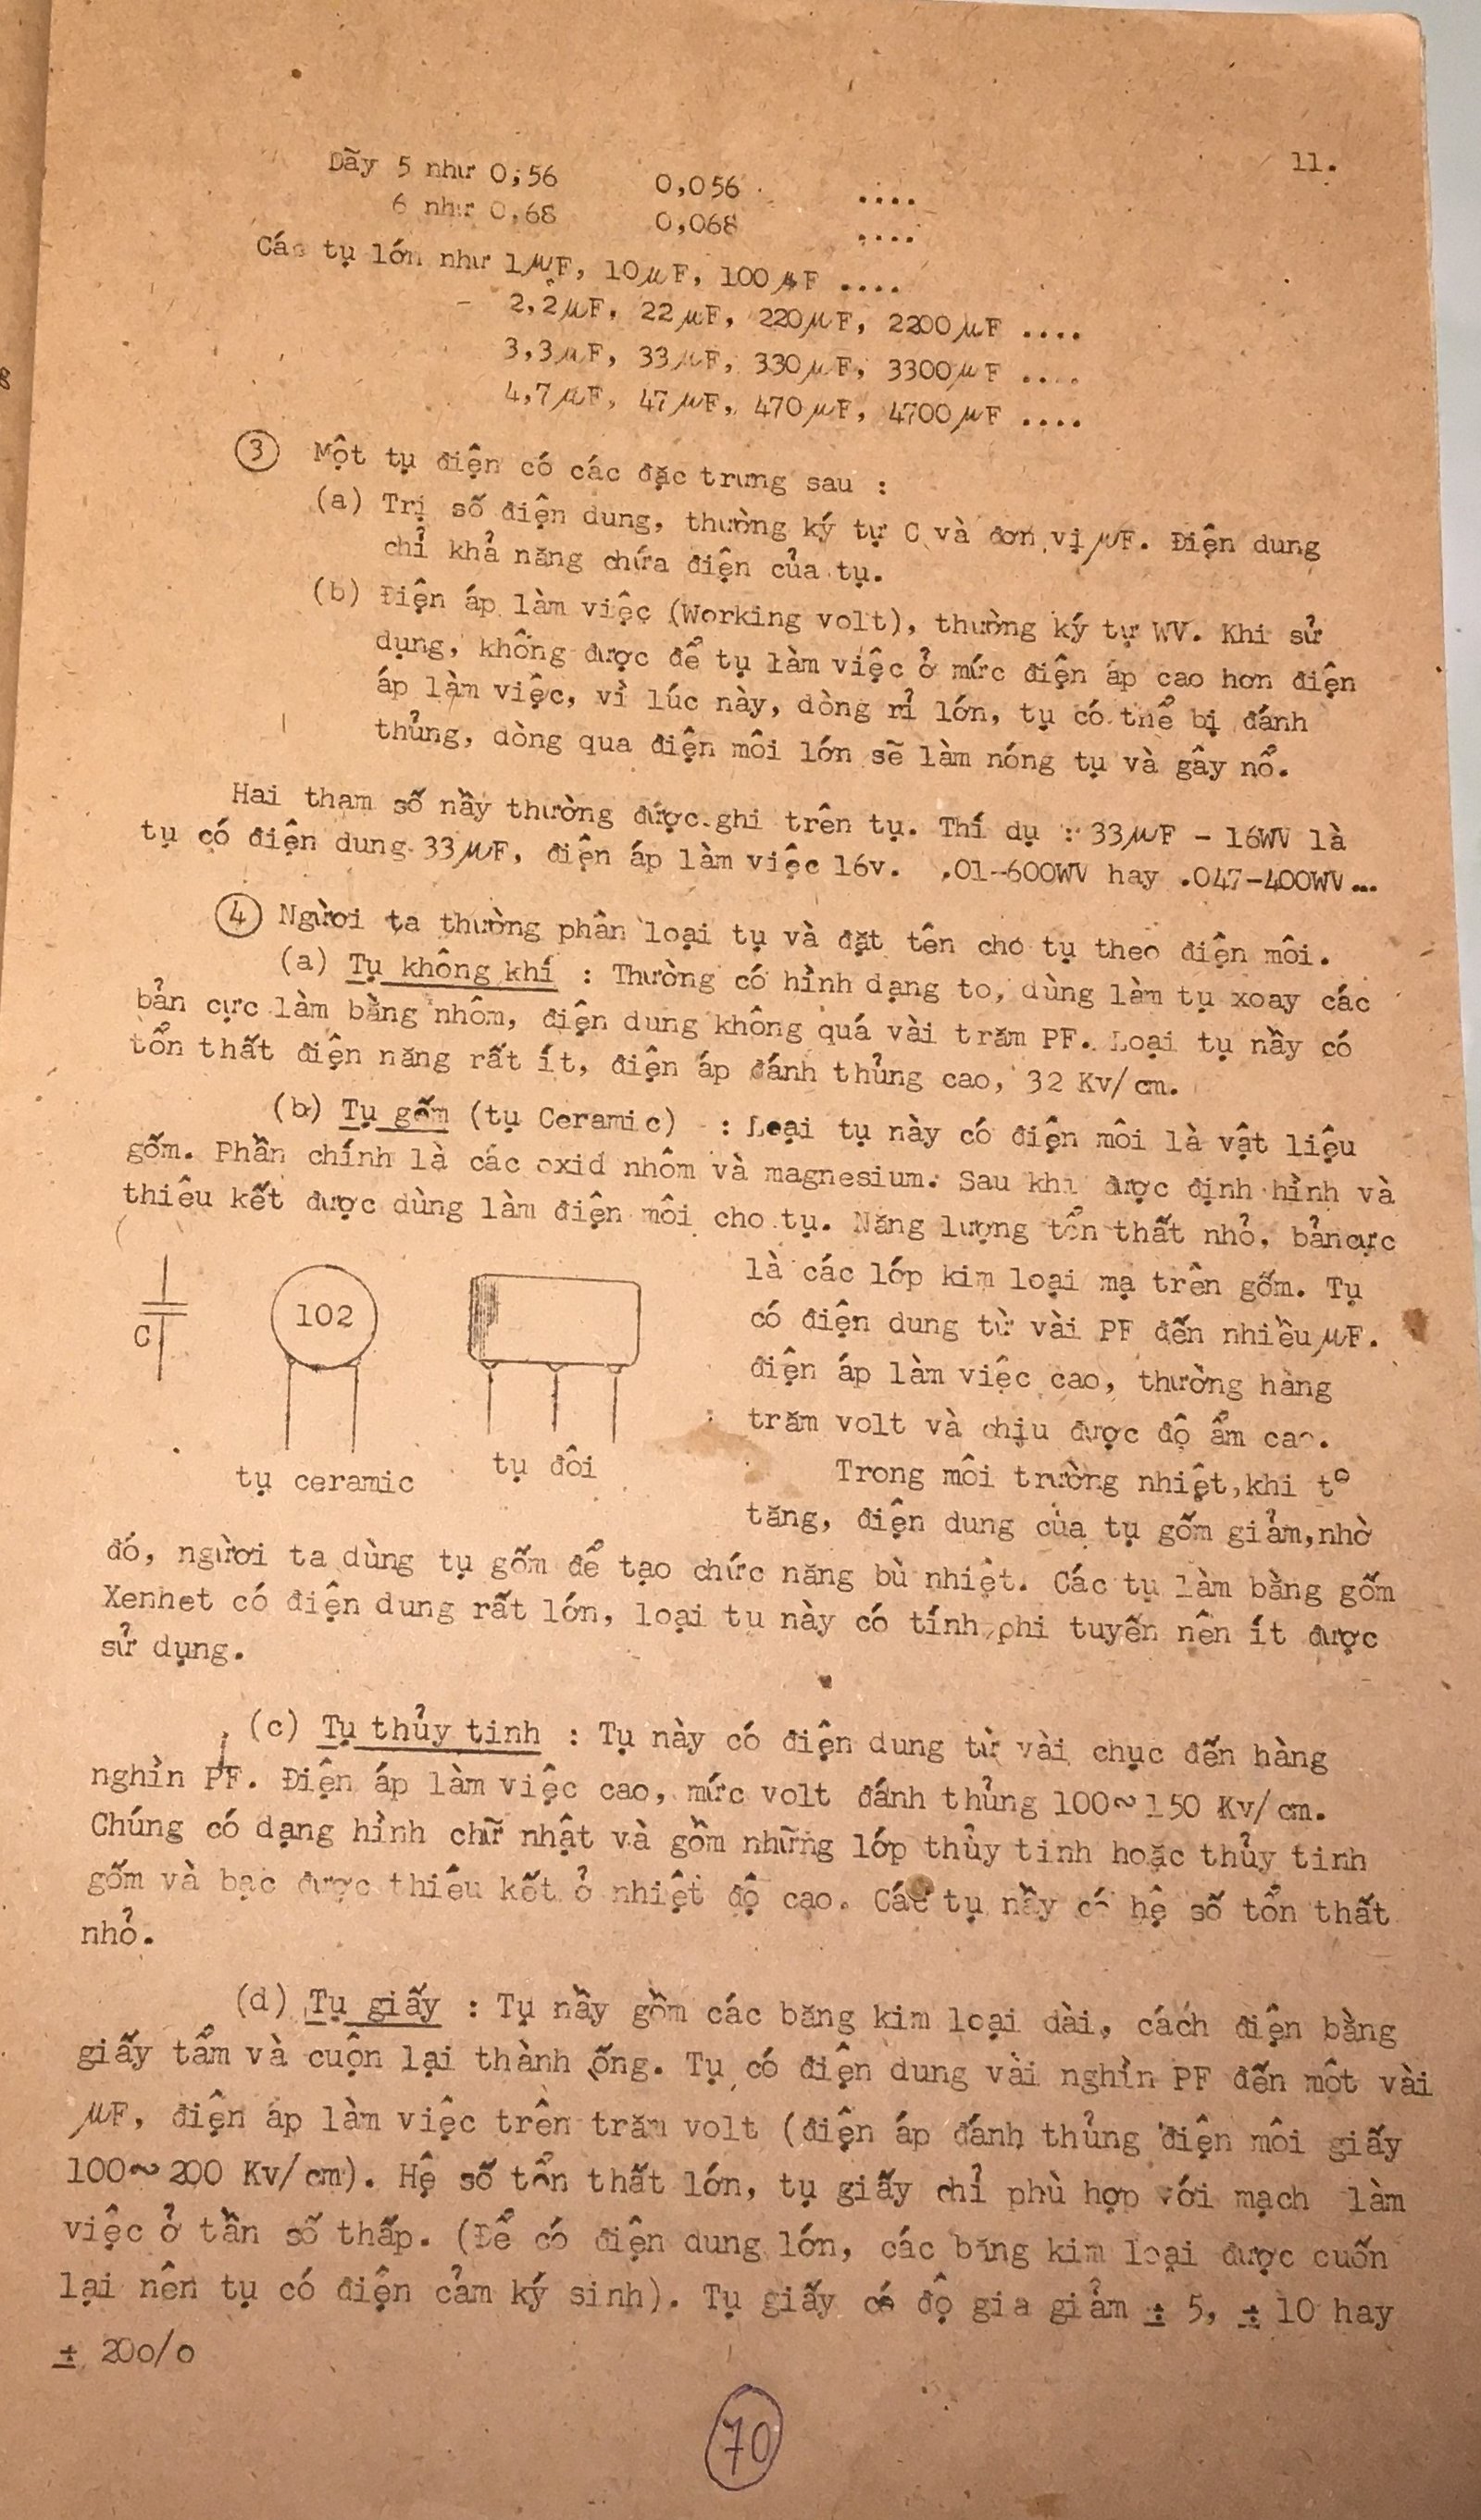 11.
Dãy 5 như 0,56 0,056 ....
6 như 0,68 0,068 ....
Các tụ lớn như 1μF, 10μF, 100μF ....
2,2μF, 22μF, 220μF, 2200μF ....
3,3μF, 33μF, 330μF, 3300μF ....
4,7μF, 47μF, 470μF, 4700μF ....
③ Một tụ điện có các đặc trưng sau :
(a) Trị số điện dung, thường ký tự C và đơn vị μF. Điện dung
chỉ khả năng chứa điện của tụ.
(b) Điện áp làm việc (Working volt), thường ký tự WV. Khi sử
dụng, không được để tụ làm việc ở mức điện áp cao hơn điện
áp làm việc, vì lúc này, dòng rỉ lớn, tụ có thể bị đánh
thủng, dòng qua điện môi lớn sẽ làm nóng tụ và gây nổ.
Hai tham số nầy thường được ghi trên tụ. Thí dụ : 33μF - 16WV là
tụ có điện dung 33μF, điện áp làm việc 16v. .01-600WV hay .047-400WV...
④ Người ta thường phân loại tụ và đặt tên cho tụ theo điện môi.
(a) Tụ không khí : Thường có hình dạng to, dùng làm tụ xoay các
bản cực làm bằng nhôm, điện dung không quá vài trăm PF. Loại tụ nầy có
tổn thất điện năng rất ít, điện áp đánh thủng cao, 32 Kv/cm.
(b) Tụ gốm (tụ Ceramic) : Loại tụ này có điện môi là vật liệu
gốm. Phần chính là các oxid nhôm và magnesium. Sau khi được định hình và
thiêu kết được dùng làm điện môi cho tụ. Năng lượng tổn thất nhỏ, bản cực
là các lớp kim loại mạ trên gốm. Tụ
có điện dung từ vài PF đến nhiều μF.
điện áp làm việc cao, thường hàng
trăm volt và chịu được độ ẩm cao.
C
102
tụ ceramic
tụ đôi
Trong môi trường nhiệt, khi t°
tăng, điện dung của tụ gốm giảm, nhờ
đó, người ta dùng tụ gốm để tạo chức năng bù nhiệt. Các tụ làm bằng gốm
Xenhet có điện dung rất lớn, loại tu này có tính phi tuyến nên ít được
sử dụng.
(c) Tụ thủy tinh : Tụ này có điện dung từ vài chục đến hàng
nghìn PF. Điện áp làm việc cao, mức volt đánh thủng 100~150 Kv/cm.
Chúng có dạng hình chữ nhật và gồm những lớp thủy tinh hoặc thủy tinh
gốm và bạc được thiêu kết ở nhiệt độ cao. Các tụ nầy có hệ số tổn thất
nhỏ.
(d) Tụ giấy : Tụ nầy gồm các băng kim loại dài, cách điện bằng
giấy tẩm và cuộn lại thành ống. Tụ có điện dung vài nghìn PF đến một vài
μF, điện áp làm việc trên trăm volt (điện áp đánh thủng điện môi giấy
100~200 Kv/cm). Hệ số tổn thất lớn, tụ giấy chỉ phù hợp với mạch làm
việc ở tần số thấp. (Để có điện dung lớn, các băng kim loại được cuốn
lại nên tụ có điện cảm ký sinh). Tụ giấy có độ gia giảm ± 5, ± 10 hay
± 20o/o
70